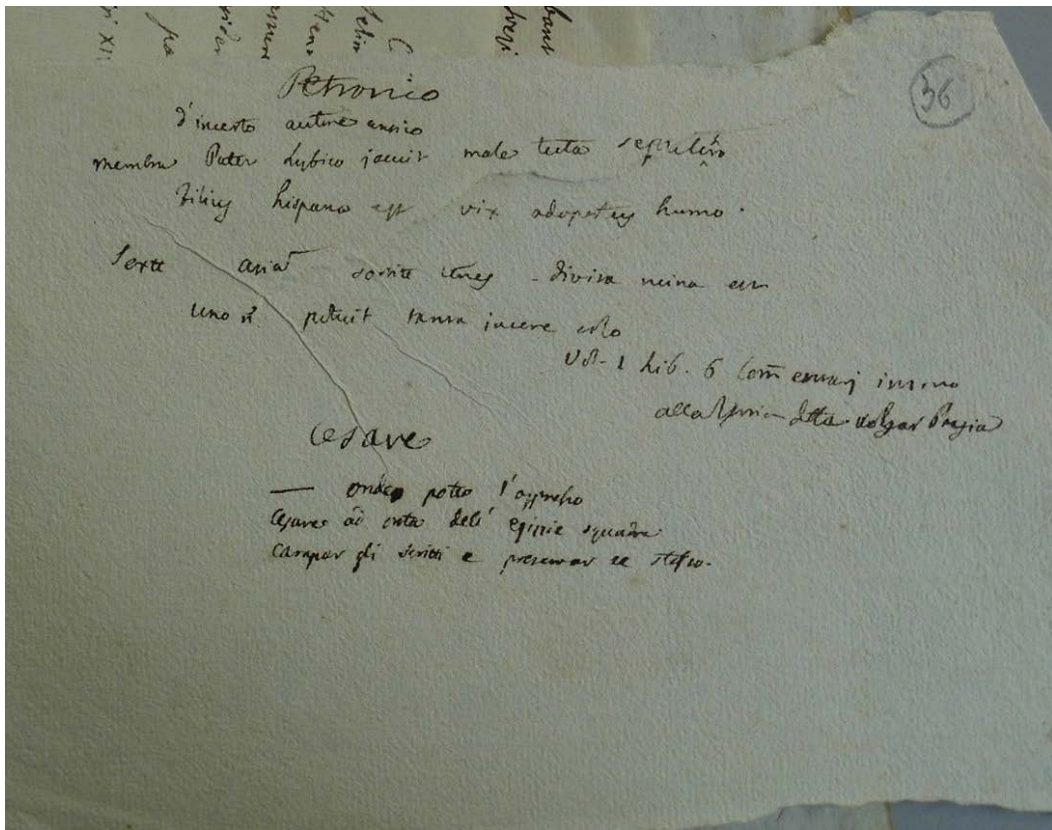 36
Petronio
d'incerto autore antico
membra Pater Lybico jacuit male tecta sepulchro
Filius hispana est vix adopertus humo.
Sexte Asiā sortite tenes - divisa ruina est
Uno n̄ potuit tanta jacere solo
Vol. 1 Lib. 6 Com̄entarj intorno
alla Istoria della volgar Poesia
Cesare
— potéo l'oppresso
Cesare ad onta dell' egizie squadre
Campar gli scritti e preservar se stesso.